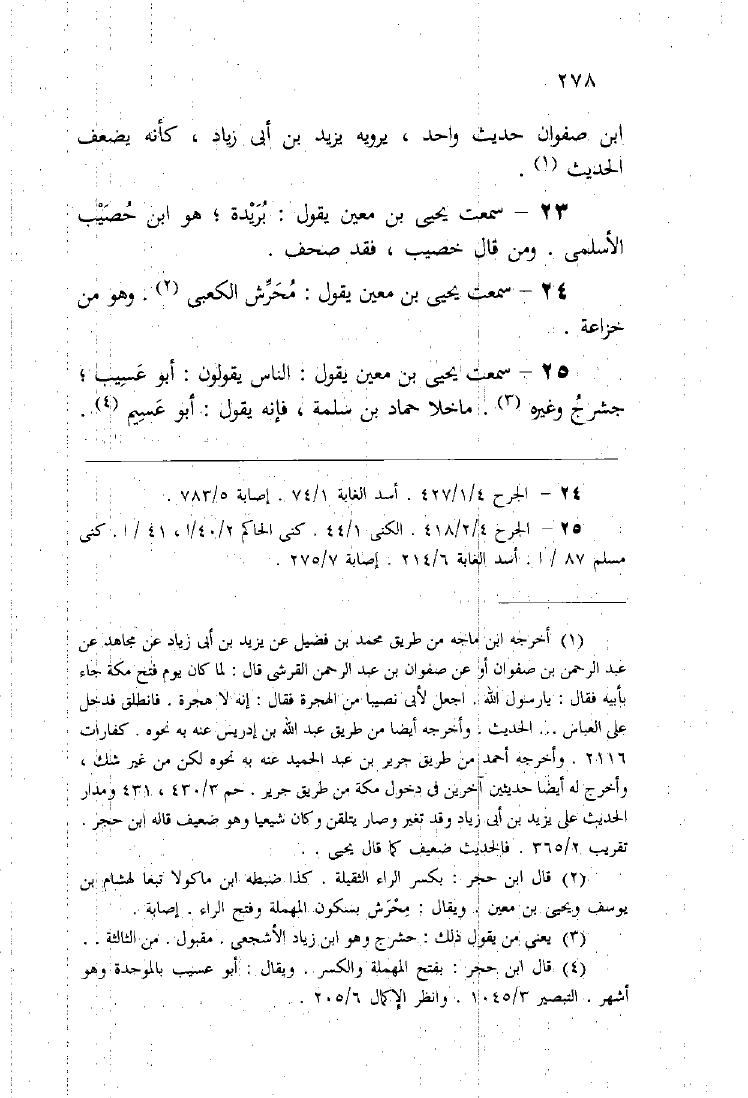 ٢٧٨
ابن صفوان حديث واحد ، يرويه يزيد بن أبى زياد ، كأنه يضعف
الحديث (١) .
٢٣ – سمعت يحيى بن معين يقول : بُرَيْدة ؛ هو ابن حُصَيْب
الأسلمى . ومن قال خصيب ، فقد صحف .
٢٤ – سمعت يحيى بن معين يقول : مُحَرِّش الكعبى (٢) . وهو من
خزاعة .
٢٥ – سمعت يحيى بن معين يقول : الناس يقولون : أبو عَسِيب ؛
حشرجُ وغيره (٣) . ماخلا حماد بن سلمة ، فإنه يقول : أبو عَسِيم (٤) .
٢٤ – الجرح ٤٢٧/١/٤ . أسد الغابة ٧٤/١ . إصابة ٧٨٣/٥ .
٢٥ – الجرح ٤١٨/٢/٤ . الكنى ٤٤/١ . كنى الحاكم ٤٠/٢/ا ، ٤١ / ا . كنى
مسلم ٨٧ / ا . أسد الغابة ٢١٤/٦ . إصابة ٢٧٥/٧ .
(١) أخرجه ابن ماجه من طريق محمد بن فضيل عن يزيد بن أبى زياد عن مجاهد عن
عبد الرحمن بن صفوان أو عن صفوان بن عبد الرحمن القرشى قال : لما كان يوم فتح مكة جاء
بأبيه فقال : يارسول الله . اجعل لأبى نصيبا من الهجرة فقال : إنه لا هجرة . فانطلق فدخل
على العباس ... الحديث . وأخرجه أيضا من طريق عبد الله بن إدريس عنه به نحوه . كفارات
٢١١٦ . وأخرجه أحمد من طريق جرير بن عبد الحميد عنه به نحوه لكن من غير شك ،
وأخرج له أيضا حديثين آخرين فى دخول مكة من طريق جرير . حم ٤٣٠/٣ ، ٤٣١ ومدار
الحديث على يزيد بن أبى زياد وقد تغير وصار يتلقن وكان شيعيا وهو ضعيف قاله ابن حجر .
تقريب ٣٦٥/٢ . فالحديث ضعيف كما قال يحيى . .
(٢) قال ابن حجر : بكسر الراء الثقيلة . كذا ضبطه ابن ماكولا تبعا لهشام بن
يوسف ويحيى بن معين . ويقال : مِحْرَش بسكون المهملة وفتح الراء . إصابة .
(٣) يعني من يقول ذلك : حشرج وهو ابن زياد الأشجعى . مقبول . من الثالثة . .
(٤) قال ابن حجر : بفتح المهملة والكسر . ويقال : أبو عسيب بالموحدة وهو
أشهر . التبصير ١٠٤٥/٣ . وانظر الإكمال ٢٠٥/٦ .